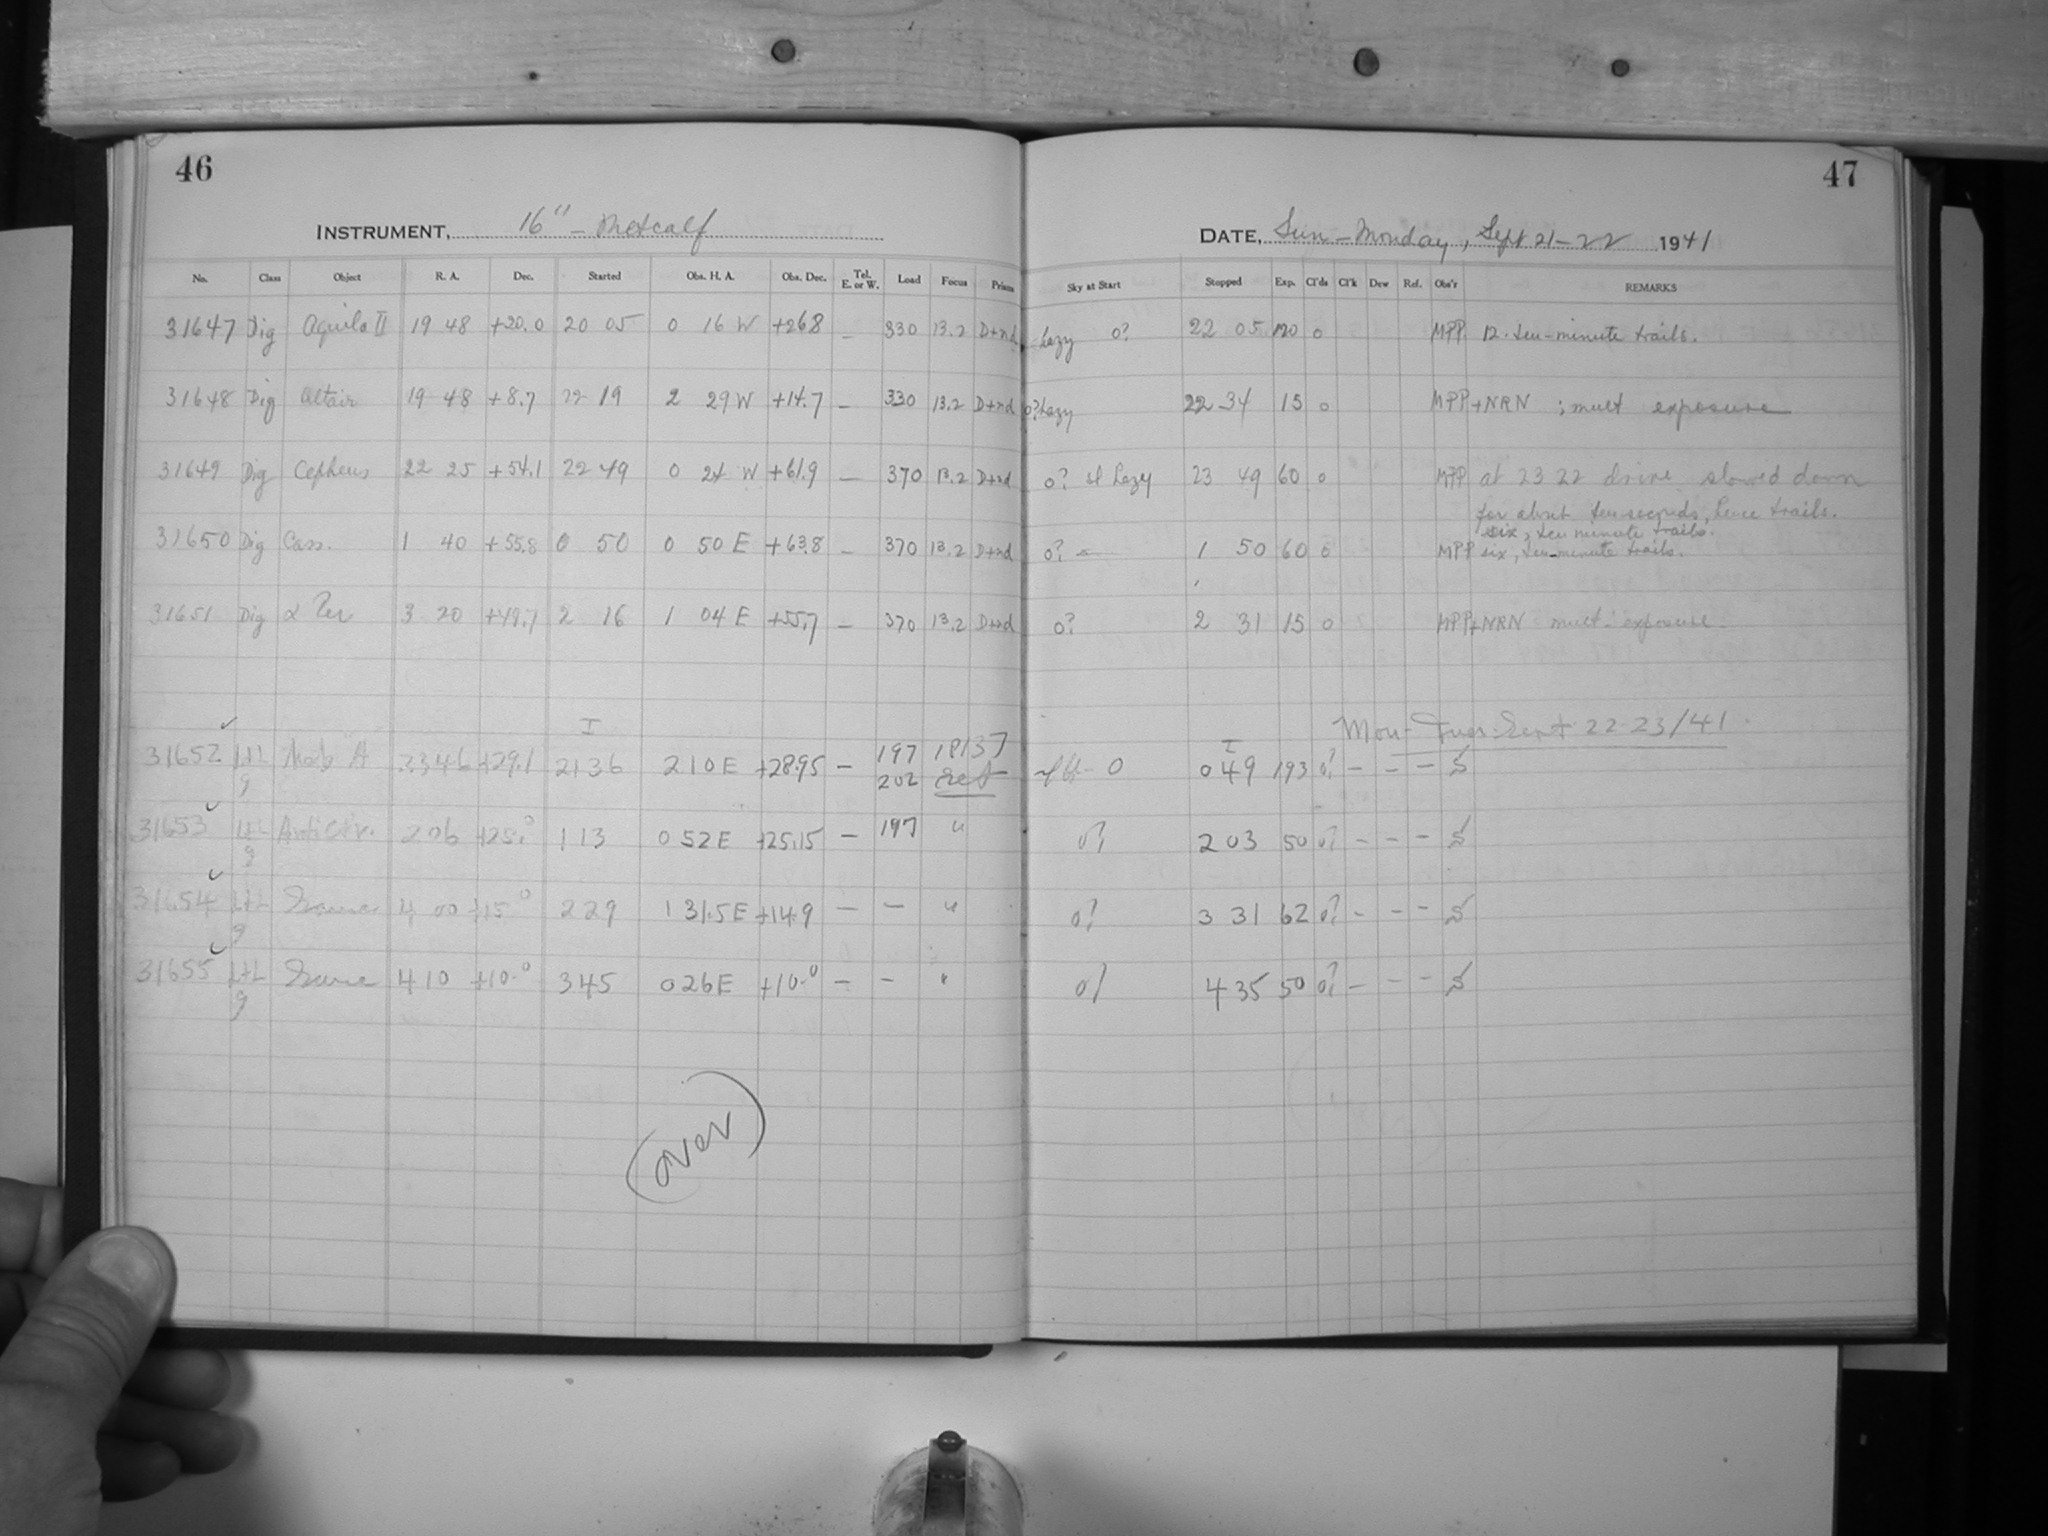 46
47
INSTRUMENT, 16" - Metcalf
DATE, Sun - Monday, Sept 21-22 1941
No. Class Object R. A. Dec. Started Obs. H. A. Obs. Dec. Tel. E. or W. Load Focus Prisms Sky at Start Stopped Exp. Cl'ds Cl'k Dew Ref. Obs'r REMARKS
31647 Dig Aquila II 19 48 +20.0 20 05 0 16 W +26.8 - 330 13.2 D+nd Hazy 0? 22 05 120 0 MPP. 12-ten-minute trails.
31648 Dig Altair 19 48 +8.7 22 19 2 29 W +14.7 - 330 13.2 D+nd 0? Hazy 22 34 15 0 MPP+NRN ; mult exposure
31649 Dig Cepheus 22 25 +54.1 22 49 0 24 W +61.9 - 370 13.2 D+nd 0? sl Hazy 23 49 60 0 MPP at 23 22 drive slowed down
for about ten seconds, hence trails.
six, ten minute trails.
31650 Dig Cass. 1 40 +55.8 0 50 0 50 E +63.8 - 370 13.2 D+nd 0? 1 50 60 0 MPP six, ten-minute trails.
31651 Dig α Per 3 20 +49.7 2 16 1 04 E +55.7 - 370 13.2 D+nd 0? 2 31 15 0 MPP+NRN mult-exposure.
Mon-Tues. Sept 22-23/41
I I
31652 L+L g A 23 46 +29.1 21 36 2 10 E +28.95 - 197 202 0 0 49 193 0? - - -
31653 L+L g Antictr. 2 06 +25.0 1 13 0 52 E +25.15 - 197 " 0? 2 03 50 0? - - -
31654 L+L g 4 00 +15.0 2 29 1 31.5 E +14.9 - - " 0? 3 31 62 0? - - -
31655 L+L g 4 10 +10.0 3 45 0 26 E +10.0 - - " 0? 4 35 50 0? - - -
(over)